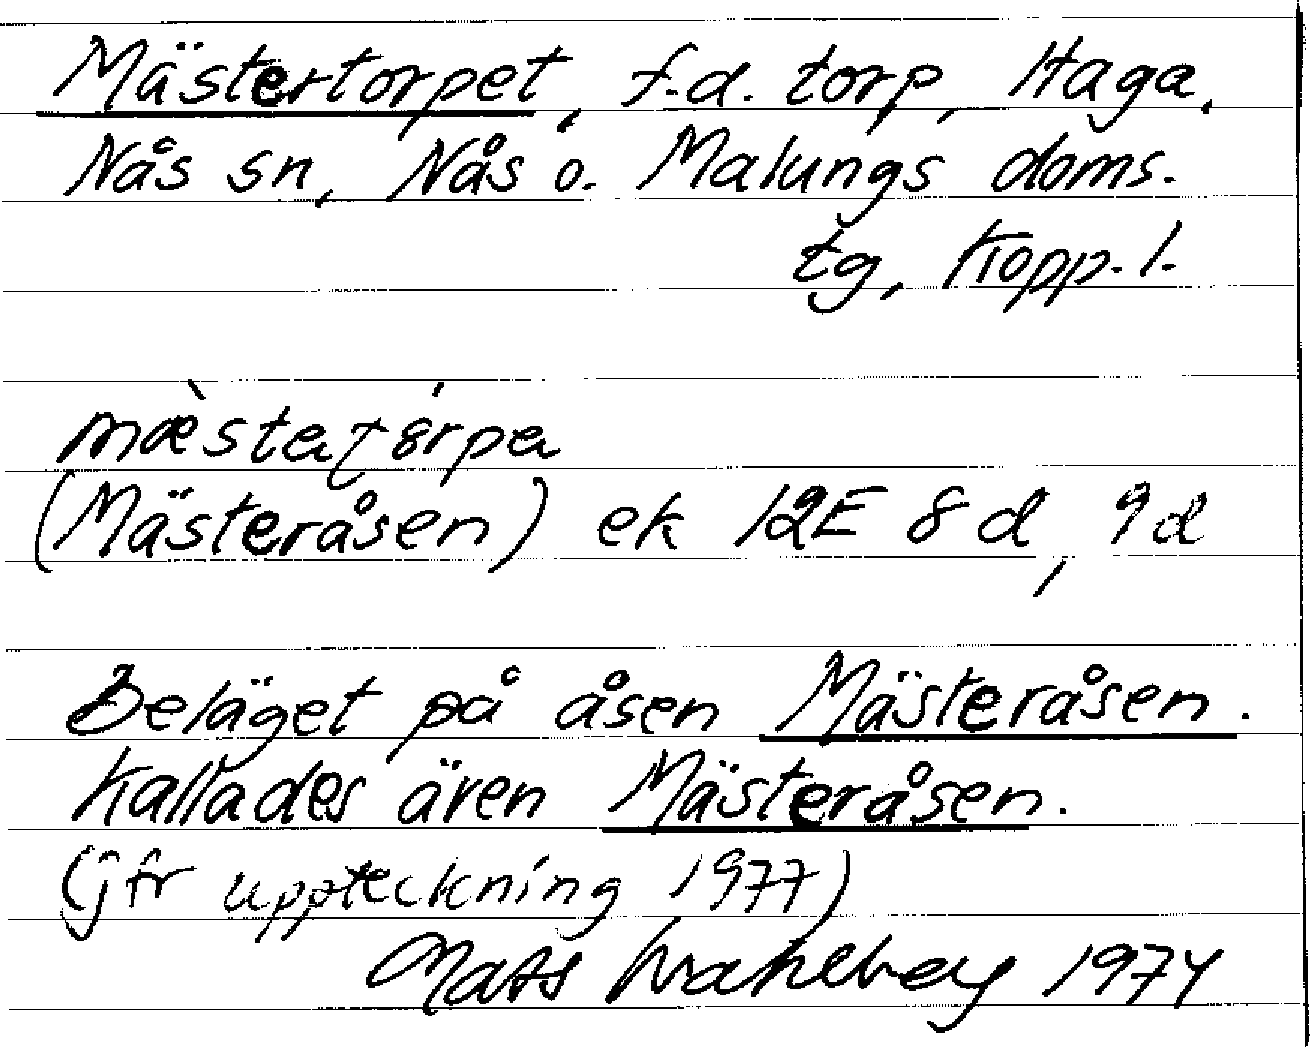 Mästertorpet, f.d. torp, Haga,
Nås sn, Nås o. Malungs doms.
tg, Kopp. l.
(Mästeråsen) ek 12E 8d, 9d
Beläget på åsen Mästeråsen.
Kallades även Mästeråsen.
(jfr uppteckning 1977)
Mats Wahlberg 1974